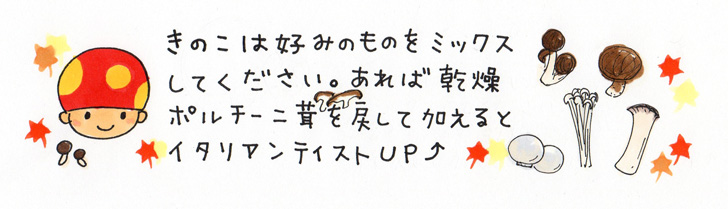 きのこは好みのものをミックス
してください。あれば乾燥
ポルチーニ茸を戻して加えると
イタリアンテイストUP↑